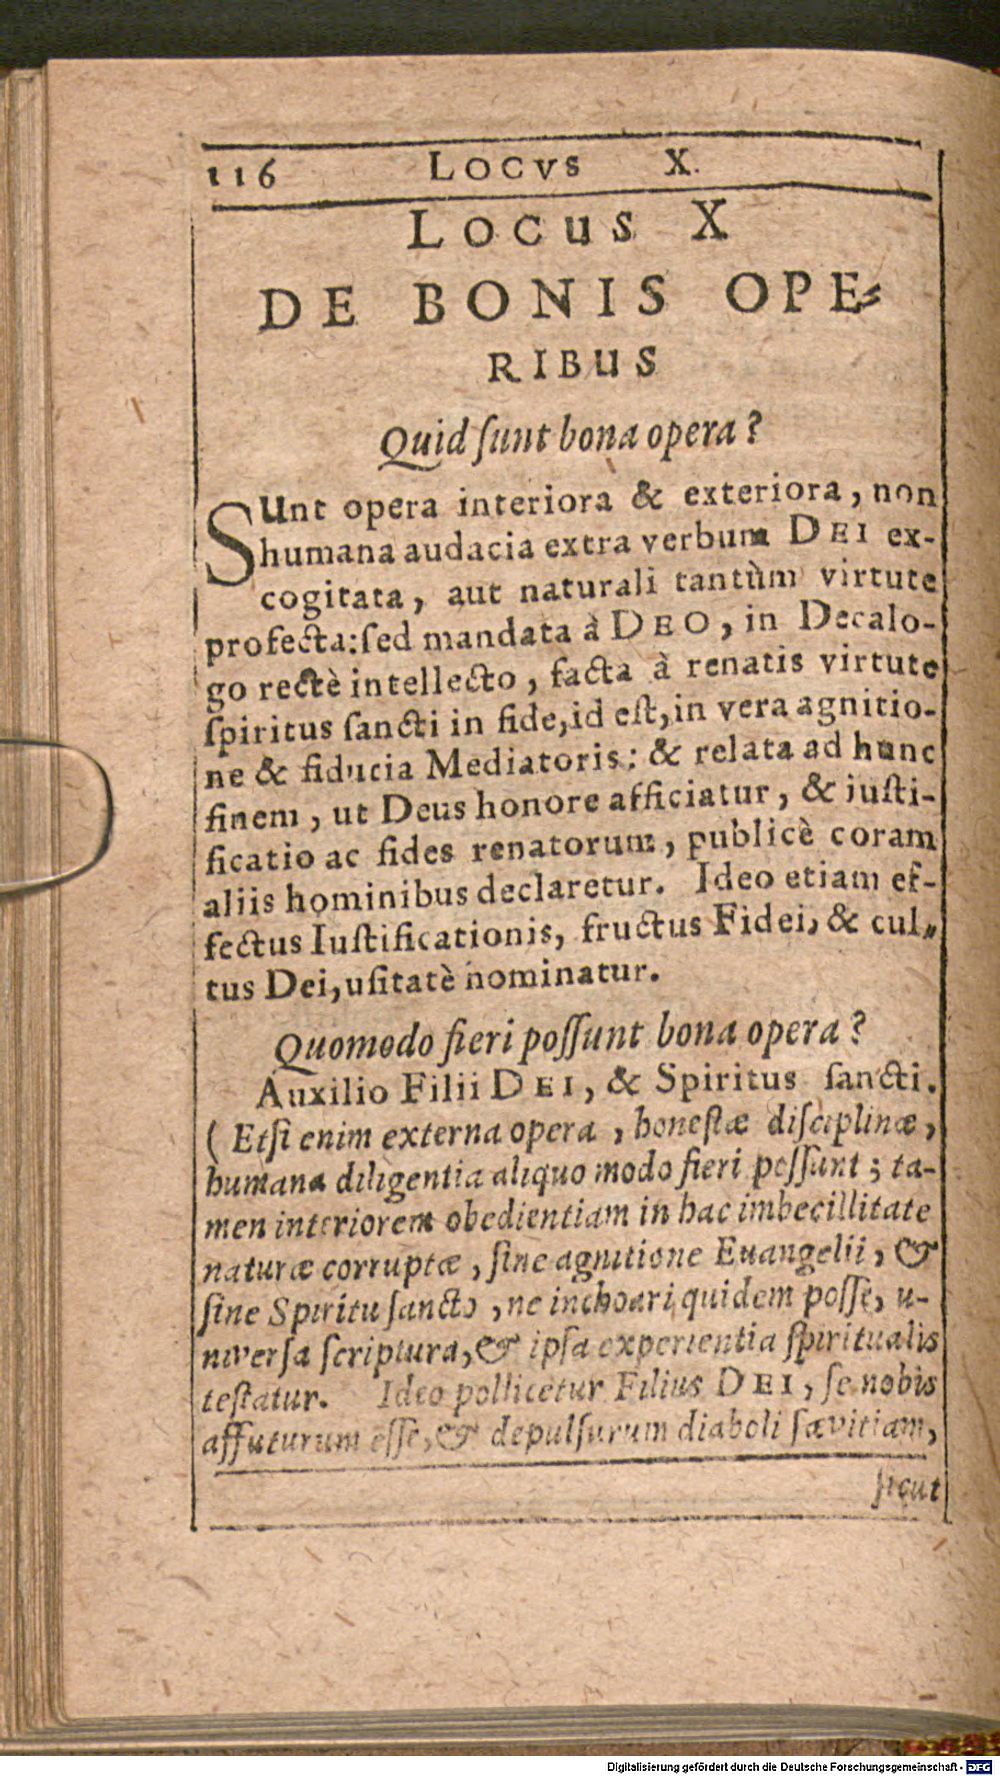 116 LOCVS X.
LOCUS X
DE BONIS OPE-
RIBUS
Quid ſunt bona opera?
SUnt opera interiora & exteriora, non
humana audacia extra verbum DEI ex-
cogitata, aut naturali tantùm virtute
profecta: ſed mandata à DEO, in Decalo-
go rectè intellecto, facta à renatis virtute
ſpiritus ſancti in fide, id eſt, in vera agnitio-
ne & fiducia Mediatoris: & relata ad hunc
finem, ut Deus honore afficiatur, & iuſti-
ficatio ac fides renatorum, publicè coram
aliis hominibus declaretur. Ideo etiam ef-
fectus Iuſtificationis, fructus Fidei, & cul-
tus Dei, uſitatè nominatur.
Quomodo fieri poſſunt bona opera?
Auxilio Filii DEI, & Spiritus ſancti.
(Etſi enim externa opera, honeſtæ diſciplinæ,
humana diligentia aliquo modo fieri poſſunt; ta-
men interiorem obedientiam in hac imbecillitate
naturæ corruptæ, ſine agnitione Euangelii, &
ſine Spiritu ſancto, ne inchoari quidem poſſe, u-
niverſa ſcriptura, & ipſa experientia ſpiritualis
teſtatur. Ideo pollicetur Filius DEI, ſe nobis
affuturum eſſe, & depulſurum diaboli ſævitiam,
ſicut
Digitalisierung gefördert durch die Deutsche Forschungsgemeinschaft - DFG